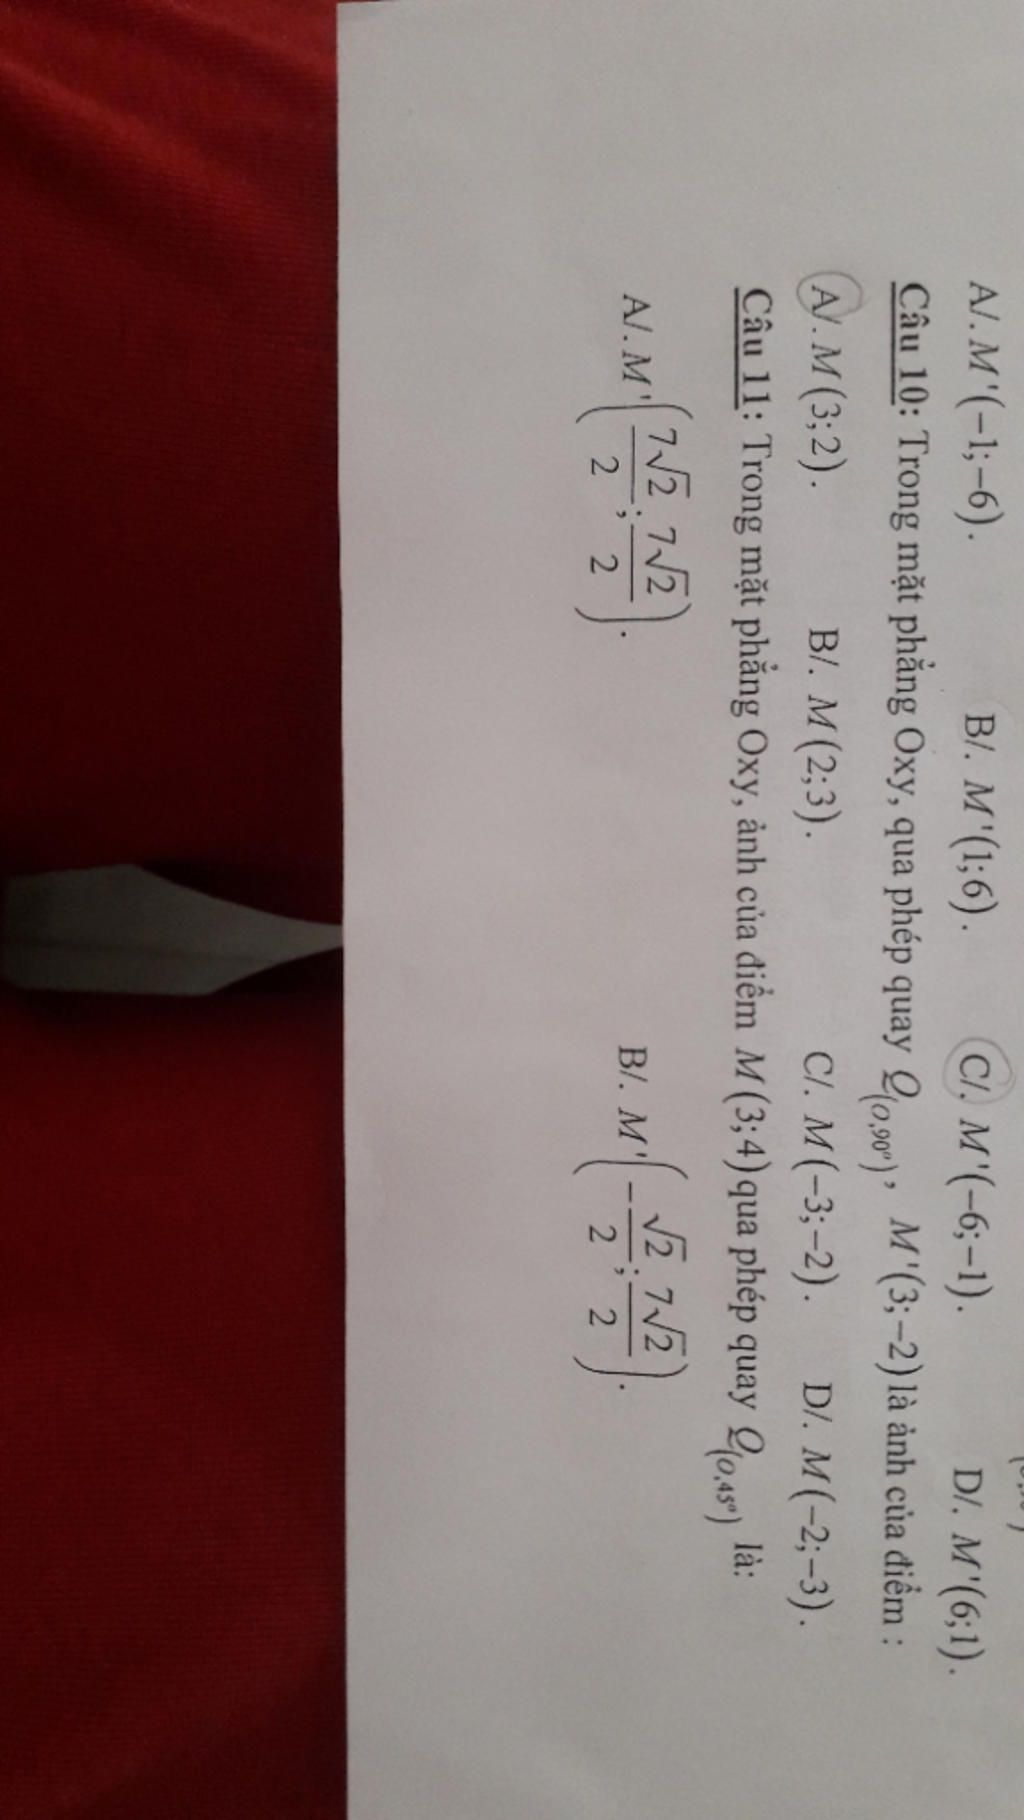 A/. M'(−1;−6). B/. M'(1;6). C/. M'(−6;−1). D/. M'(6;1).
Câu 10: Trong mặt phẳng Oxy, qua phép quay Q(O,90°), M'(3;−2) là ảnh của điểm :
A/. M(3;2). B/. M(2;3). C/. M(−3;−2). D/. M(−2;−3).
Câu 11: Trong mặt phẳng Oxy, ảnh của điểm M(3;4) qua phép quay Q(O,45°) là:
A/. M'(7√2/2; 7√2/2). B/. M'(−√2/2; 7√2/2).